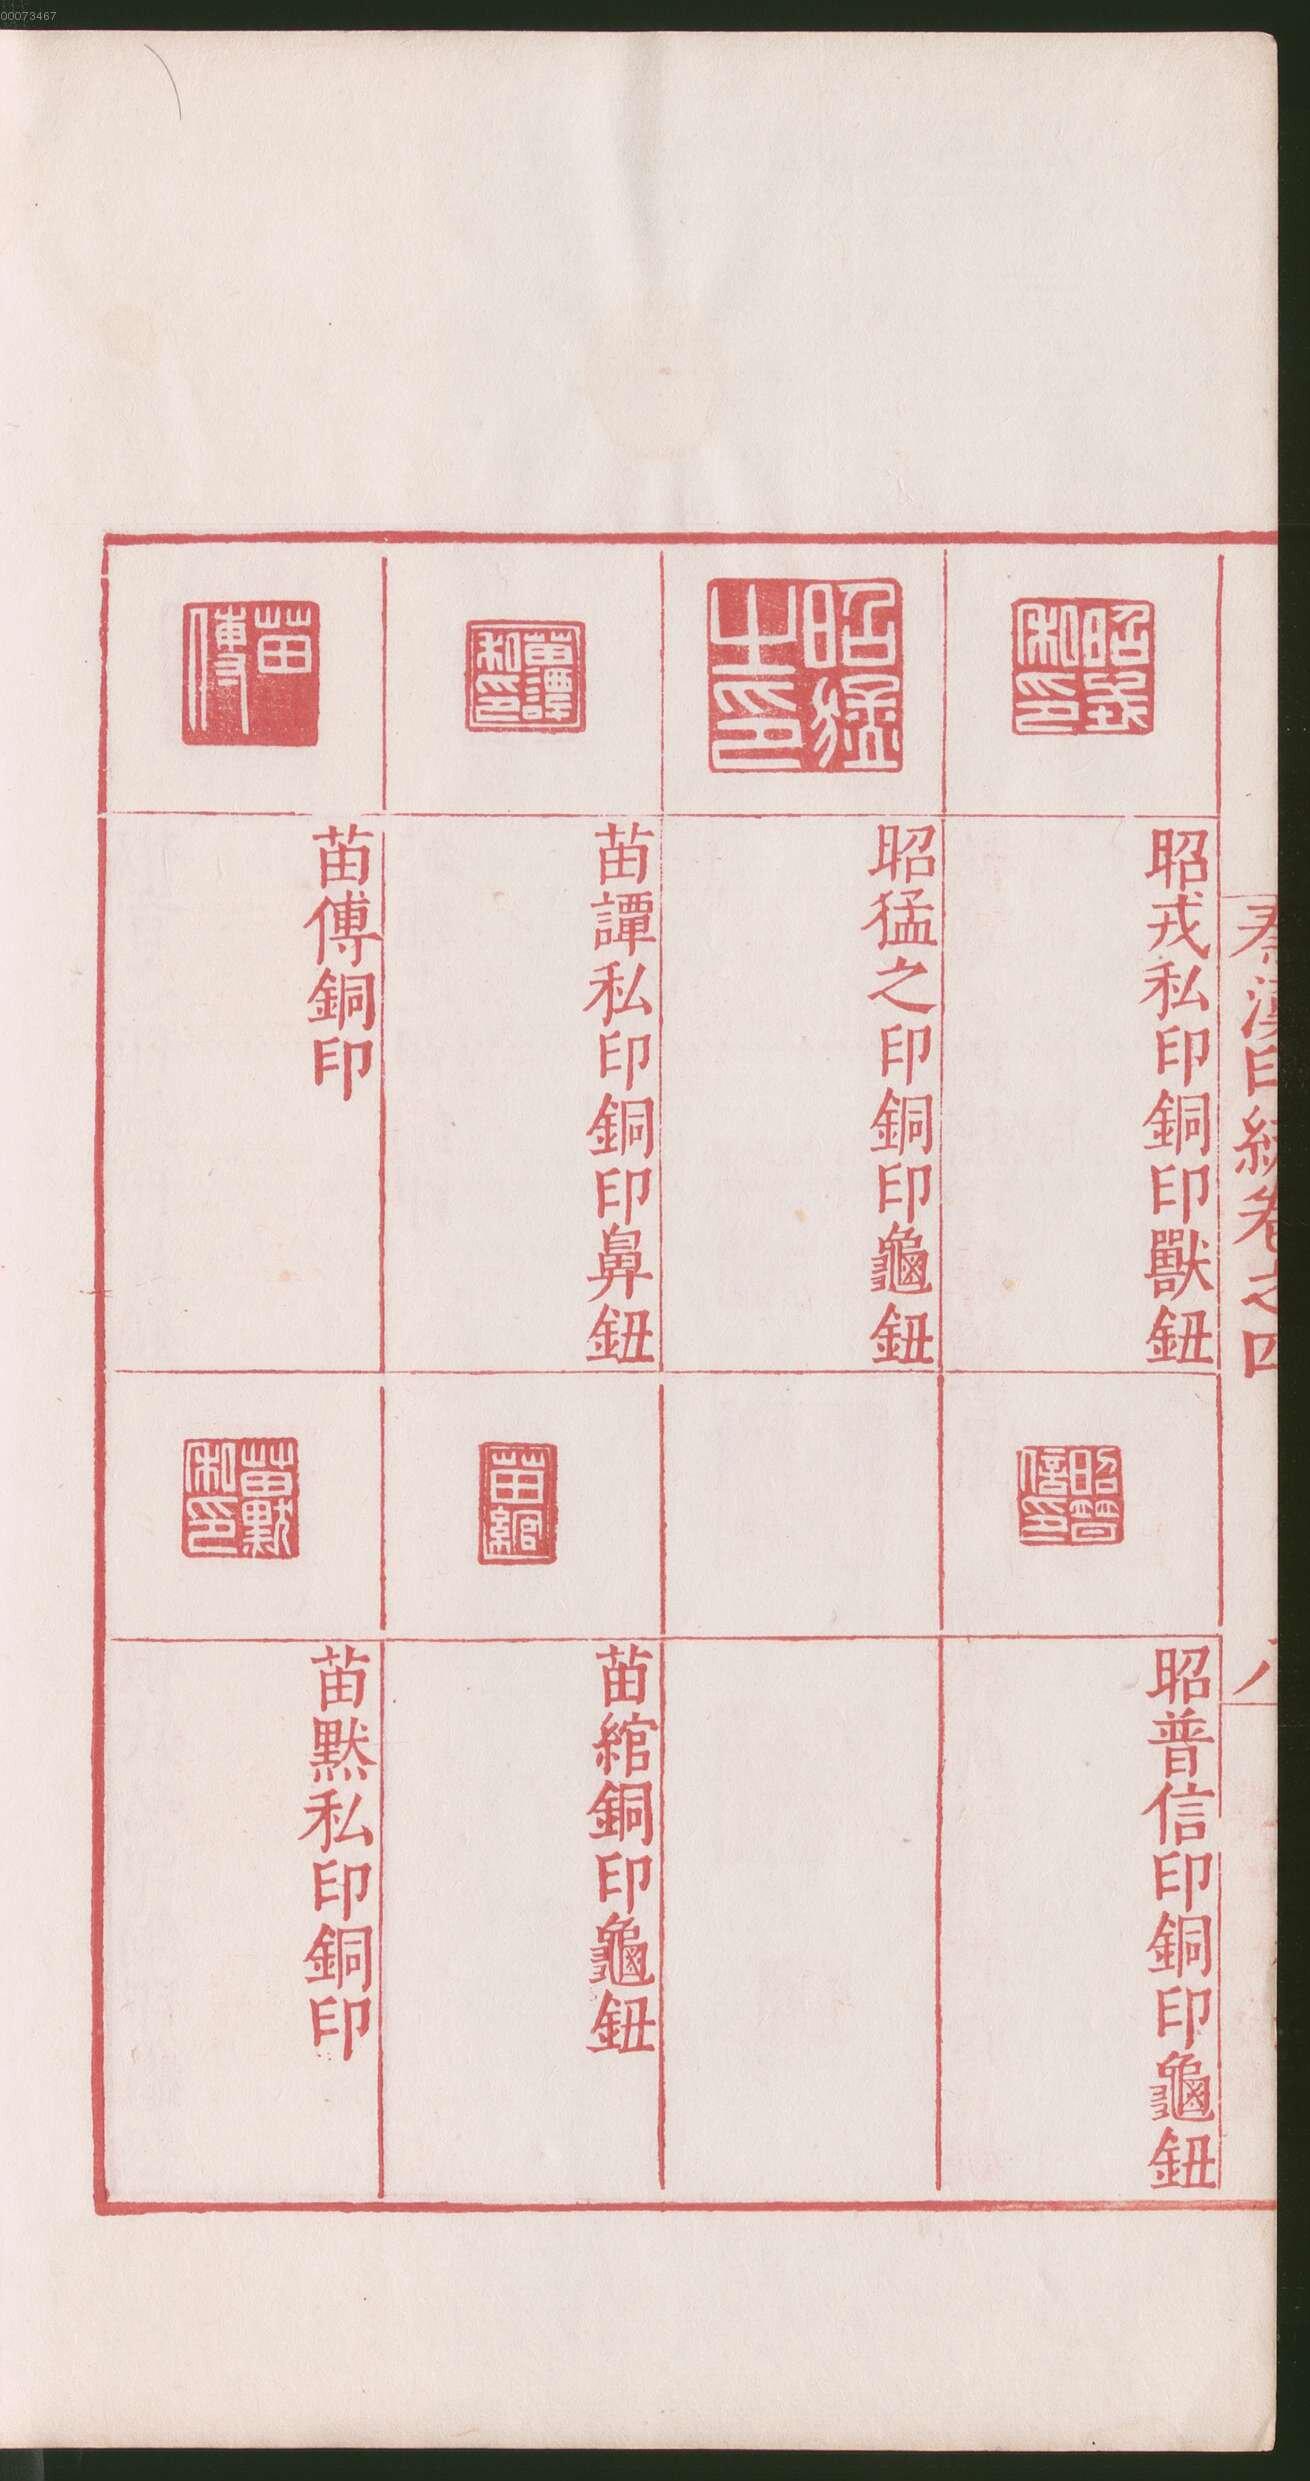 00073467
秦漢印統卷之四
八
昭戎私印
昭戎私印銅印獸鈕
昭普信印
昭普信印銅印龜鈕
昭猛之印
昭猛之印銅印龜鈕
苗譚私印
苗譚私印銅印鼻鈕
苗綰
苗綰銅印龜鈕
苗傅
苗傅銅印
苗默私印
苗默私印銅印